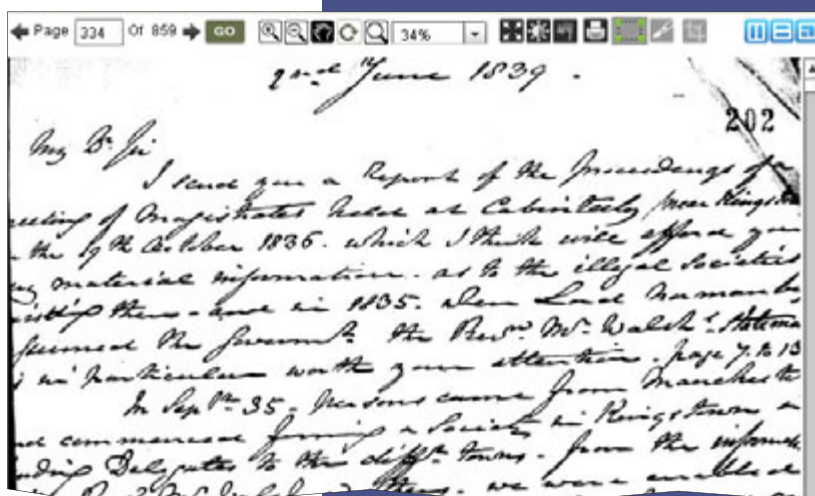 Page 334 Of 859 GO 34%
2nd June 1839.
202
My Dr Sir
I send you a Report of the Proceedings of a
meeting of Magistrates held at Cabinteely near Kingsto
the 19th October 1836. which I think will afford you
material information. as to the illegal Societies
then - and in 1835. when Lord Normanb
the Governmt. the Revd. Mr. Walsh's Stateme
in particular worth your attention. page 7. to 13
In Sepbr. 35. Persons came from Mancheste
nd commenced forming a Society in Kingstown
nding Delegates to the difft. Towns. from the informat
we were enabled